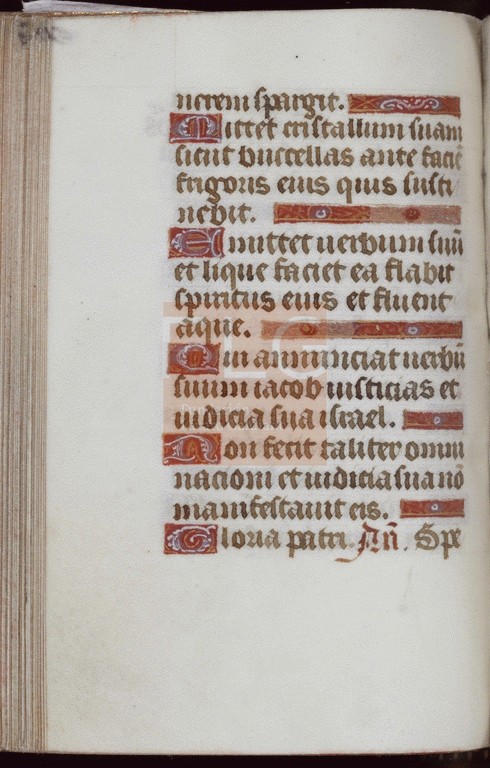 nerem spargit.
Mittet cristallum suam
sicut buccellas ante facie
frigoris eius quis susti
nebit.
Emittet uerbum suū
et lique faciet ea flabit
spiritus eius et fluent
aque.
Qui annunciat uerbū
suum iacob iusticias et
iudicia sua israel.
Non fecit taliter omni
nacioni et iudicia sua nō
manifestauit eis.
Gloria patri. Añ. Spe